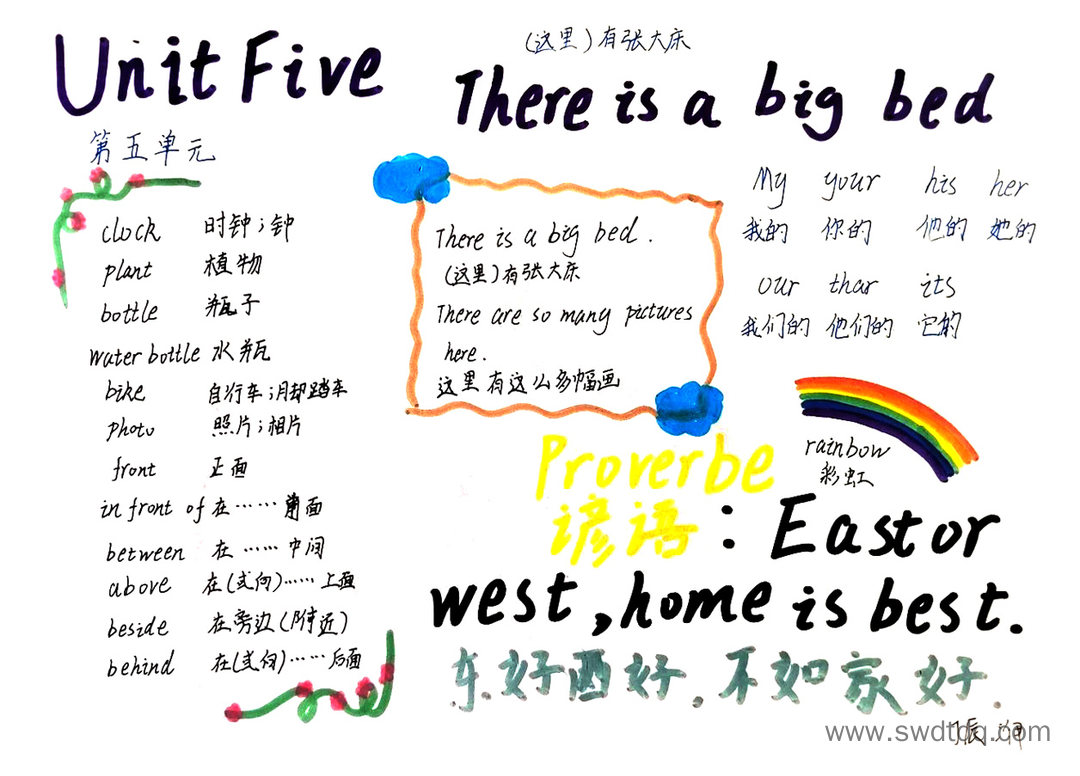 Unit Five
第五单元
(这里)有张大床
There is a big bed
clock 时钟；钟
plant 植物
bottle 瓶子
water bottle 水瓶
bike 自行车；脚踏车
photo 照片；相片
front 正面
in front of 在……前面
between 在……中间
above 在(或向)……上面
beside 在旁边(附近)
behind 在(或向)……后面
There is a big bed.
(这里)有张大床
There are so many pictures
here.
这里有这么多幅画
My your his her
我的 你的 他的 她的
our thar its
我们的 他们的 它的
rainbow
彩虹
Proverbe
谚语：East or
west, home is best.
东好西好，不如家好
www.swdtdq.com
张